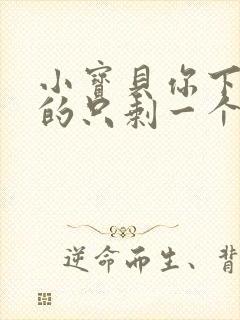 小寳貝你下
的只剩一个
逆命而生、背